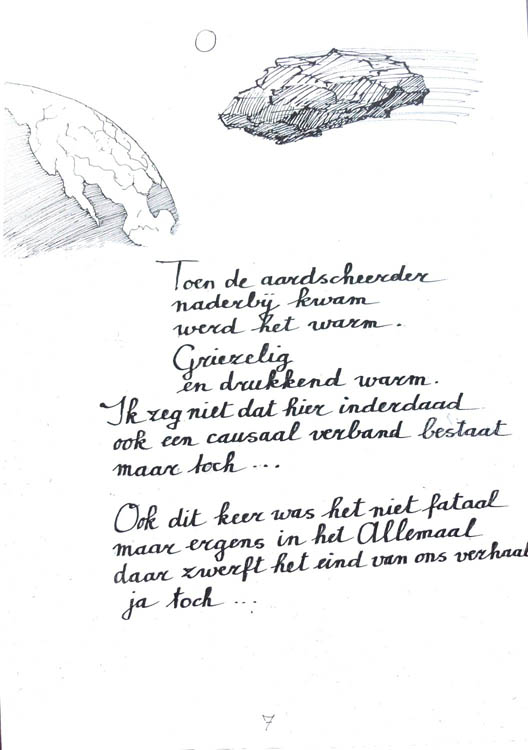 Toen de aardscheerder
naderbij kwam
werd het warm.
Griezelig
en drukkend warm.
Ik zeg niet dat hier inderdaad
ook een causaal verband bestaat
maar toch ...
Ook dit keer was het niet fataal
maar ergens in het Allemaal
daar zwerft het eind van ons verhaal
ja toch ...
7